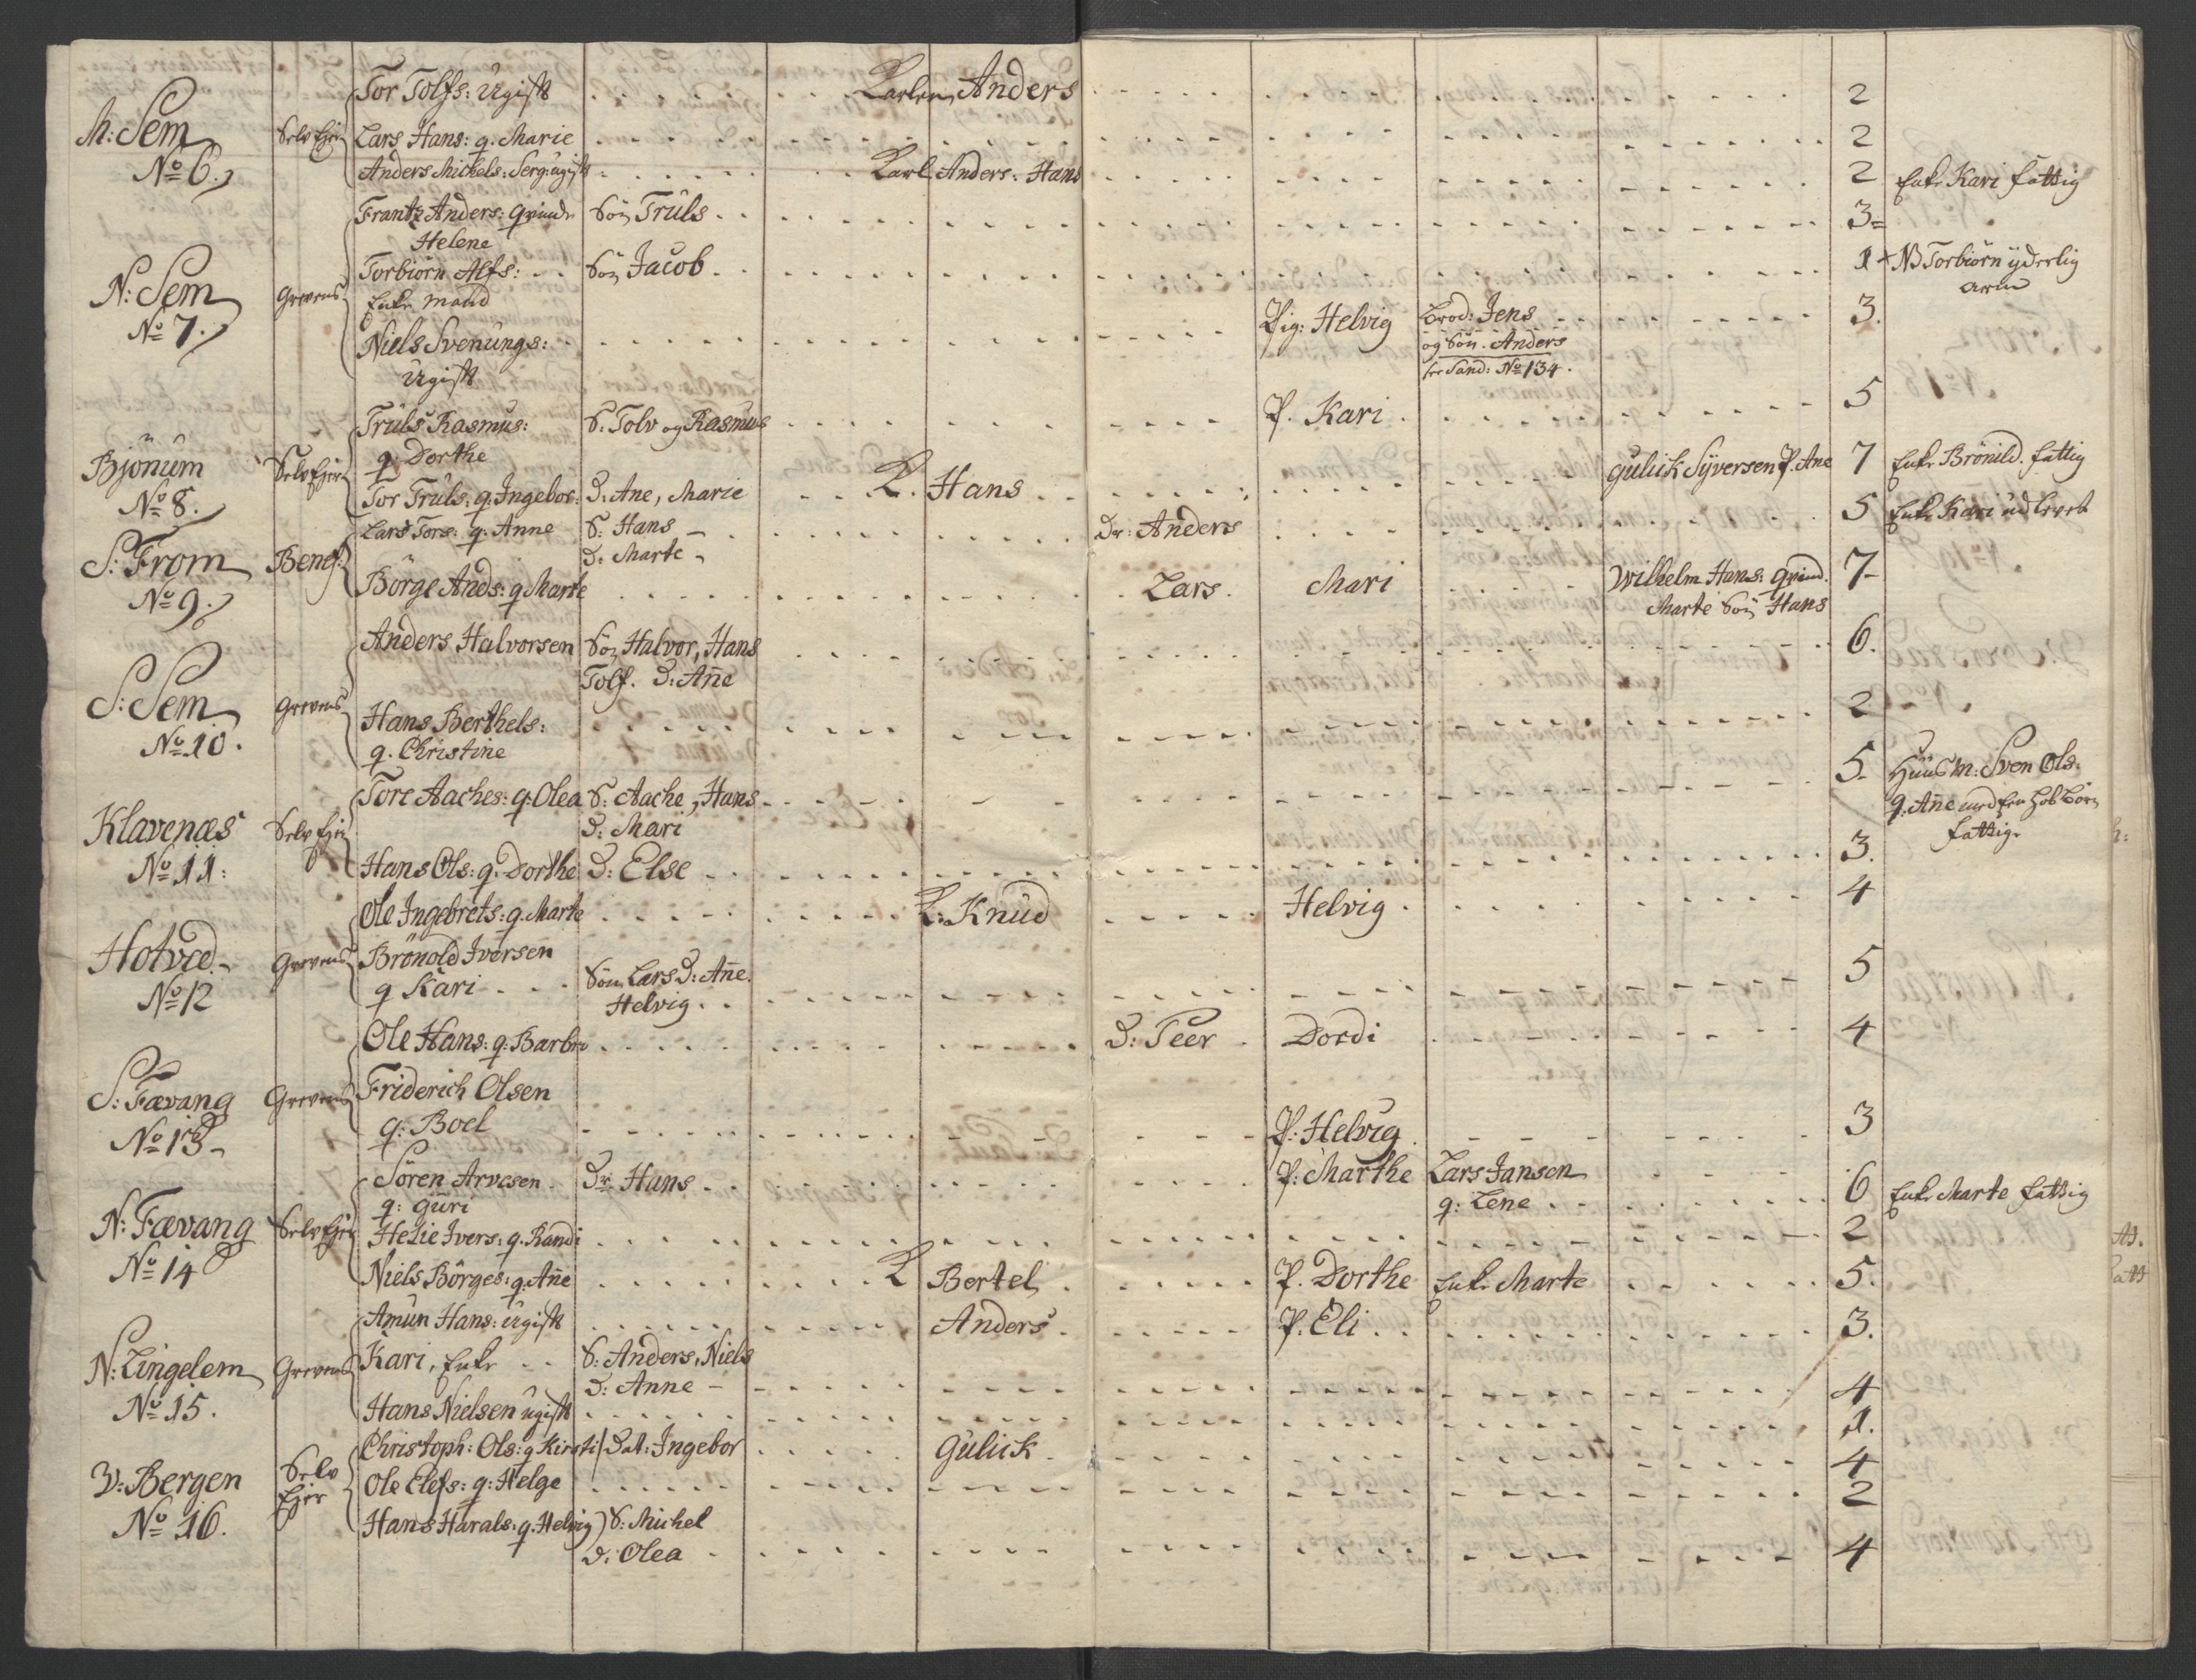 M: Sem
No 6.
Selv Ejer
Tor Tolfs: Ugift Karlen Anders 2
Lars Hans: q. Marie 2
Anders Mickels: Serg: ugift Karl Anders. Hans 2 Enke Kari fattig
N: Sem
No 7.
Grevens
Frantz Anders: Qvinde Søn Truls 3=
Helene
Torbiørn Alfs: Søn Jacob 1 + NB Torbiørn yderlig
arm
Enke Mand
Niels Svenungs: Pig: Helvig Brod: Jens 3.
Ugift og Søn. Anders
see Sand: No 134.
Bjønum
No 8.
Selv Ejer
Truls Rasmus: S: Tolv og Rasmus P. Kari 5
q. Dorthe
Tor Truls: q. Ingebor: D: Ane, Marie K. Hans Gulick Syversen P. Ane 7 Enke Brønild. fattig
S: From
No 9.
Benef:
Lars Tors: q. Anne S: Hans Dr: Anders 5 Enke Kari udlevet
D: Marte
Børge Ands: q Marte Lars. Mari Wilhelm Hans: Qvind. 7-
Marte Søn Hans
S: Sem
No 10.
Grevens
Anders Halvorsen Søn Halvor, Hans 6.
Tolf. D: Añe
Hans Berthels: 2
q. Christine
Klavenæs
No 11:
Selv Ejer
Tore Aaches: q. Olea S: Aache, Hans 5. Huus M: Sven Ols:
D: Mari q. Añe med en Hob Børn
fattige
Hans Ols: q. Dorthe D: Else 3.
Hotved
No 12
Grevens
Ole Ingebrets: q. Marte K: Knud Helvig 4
Brønold Iversen
q Kari Søn Lars D: Añe. 5
Helvig
S: Fævang
No 13
Grevens
Ole Hans: q. Barbro D: Peer Dordi 4
Friderich Olsen
q: Boel P: Helvig 3
N: Fævang
No 14
Selv Ejer
Søren Arvesen Dr Hans P: Marthe Lars Jansen 6 Enke Marte fattig
q: Guri q: Lene
Helie Ivers: q. Randi 2
Niels Børges: q. Añe K Bertel P. Dorthe Enke Marte 5.
N: Lingelem
No 15.
Grevens
Amun Hans: ugift Anders P. Eli 3.
Kari, Enke S: Anders, Niels
D: Anne 4
Hans Nielsen ugift 1.
V: Bergen
No 16.
Selv
Ejer
Christoph: Ols: q Kirsti Dat: Ingebor Gulick 4
Ole Elefs: q: Helge 2
Hans Harals: q. Helvig S: Michel
D: Olea 4